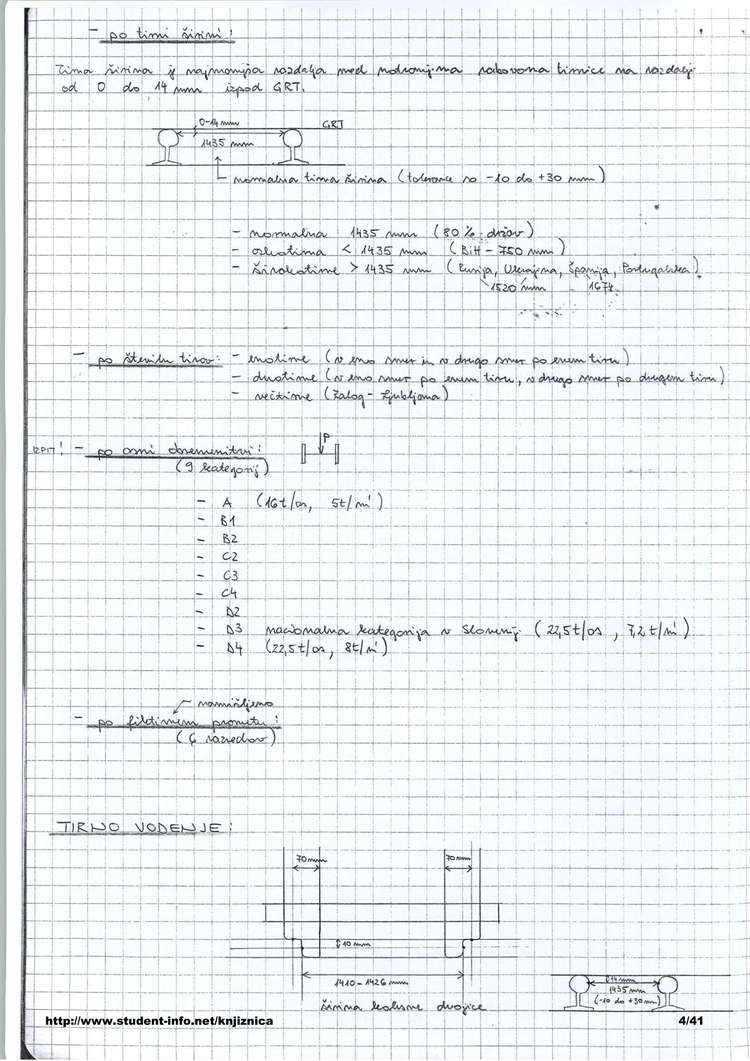 - po tirni širini:
Tirna širina je najmanjša razdalja med notranjima robovoma tirnice na razdalji
od 0 do 14 mm izpod GRT.
0-14 mm
GRT
1435 mm
normalna tirna širina (tolerance so -10 do +30 mm)
- normalna 1435 mm (80 % držav)
- ozkotirna < 1435 mm (BiH - 750 mm)
- širokotirne > 1435 mm (Rusija, Ukrajina, Španija, Portugalska)
1520 mm 1674
- po številu tirov: - enotirne (v eno smer in v drugo smer po enem tiru)
- dvotirne (v eno smer po enem tiru, v drugo smer po drugem tiru)
- večtirne (Zalog - Ljubljana)
IZPIT! - po osni obremenitvi:
(9 kategorij)
P
- A (16t/os, 5t/m')
- B1
- B2
- C2
- C3
- C4
- D2
- D3 nacionalna kategorija v Sloveniji (22,5t/os, 7,2 t/m')
- D4 (22,5t/os, 8t/m')
namišljeno
- po fiktivnem prometu:
razredov)
TIRNO VODENJE:
70 mm
70 mm
10 mm
1410-1426 mm
širina kolesne dvojice
14 mm
1435 mm
(-10 do +30 mm)
http://www.student-info.net/knjiznica
4/41